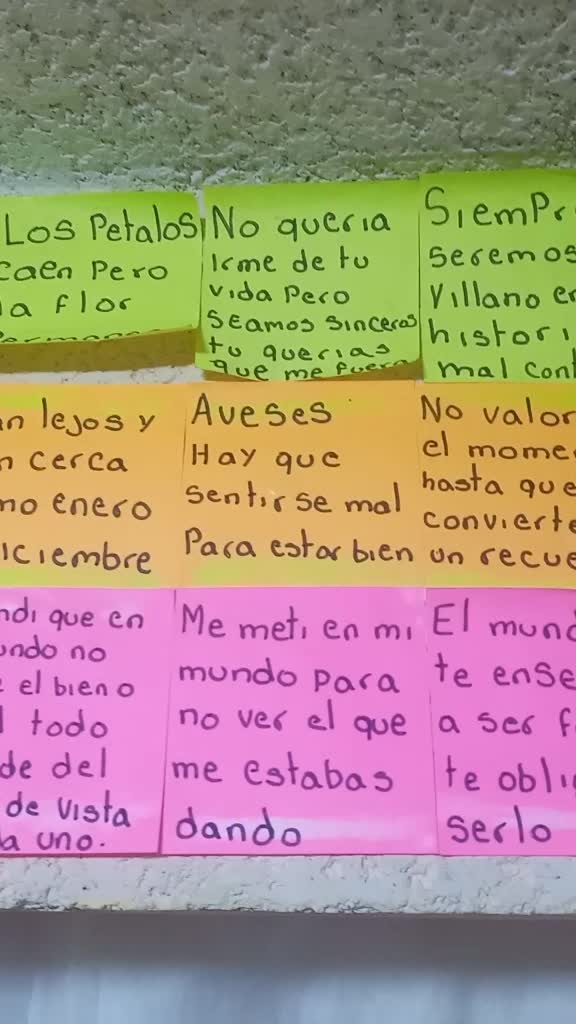 Los Petalos
caen Pero
la flor
No queria
Irme de tu
vida Pero
seamos sinceros
tu querias
que me fuera
Siempr
seremos
villano en
histori
mal cont
n lejos y
n cerca
mo enero
iciembre
Aveses
Hay que
sentirse mal
Para estar bien
No valor
el mome
hasta que
convierte
un recue
ndi que en
undo no
e el bien o
l todo
de del
de vista
a uno.
Me meti en mi
mundo para
no ver el que
me estabas
dando
El mund
te ense
a ser f
te obli
serlo